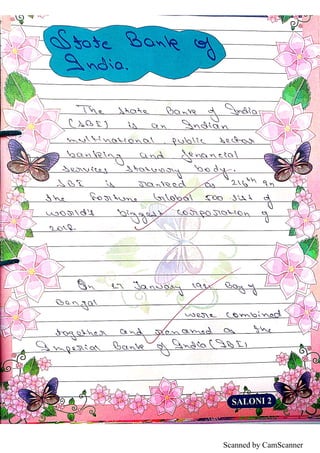 State Bank of
India.
The State Bank of India
(SBI) is an Indian
multinational, public sector
banking and financial
services statuary body.
SBI is ranked as 216th in
the Fortune Global 500 list of
world's biggest corporation of
2018.
On 27 January 1921 Bay of
Bengal
were combined
together and renamed as the
Imperial Bank of India (IBI)
SALONI 2
Scanned by CamScanner